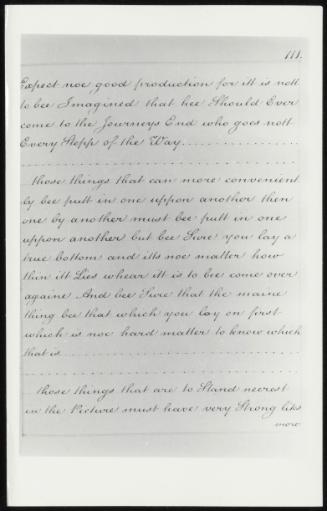 111.
Expect noe good production for itt is nott
to bee Imagined that hee Should Ever
come to the Journeys End who goes nott
Every Stepp of the Way.................
..............................
those things that can more convenient
ly bee putt in one uppon another then
one by another must bee putt in one
uppon another but bee Sure you lay a
true bottom and itts noe matter how
thin itt Lies whear itt is to bee come over
againe And bee Sure that the maine
thing bee that which you lay on first
which is noe hard matter to know which
that is..............................
..............................
those things that are to Stand nearest
in the Picture must have very Strong liks
more